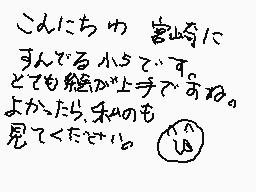 こんにちわ 宮崎に
すんでる小5です。
とても絵が上手ですね。
よかったら、私のも
見てください。